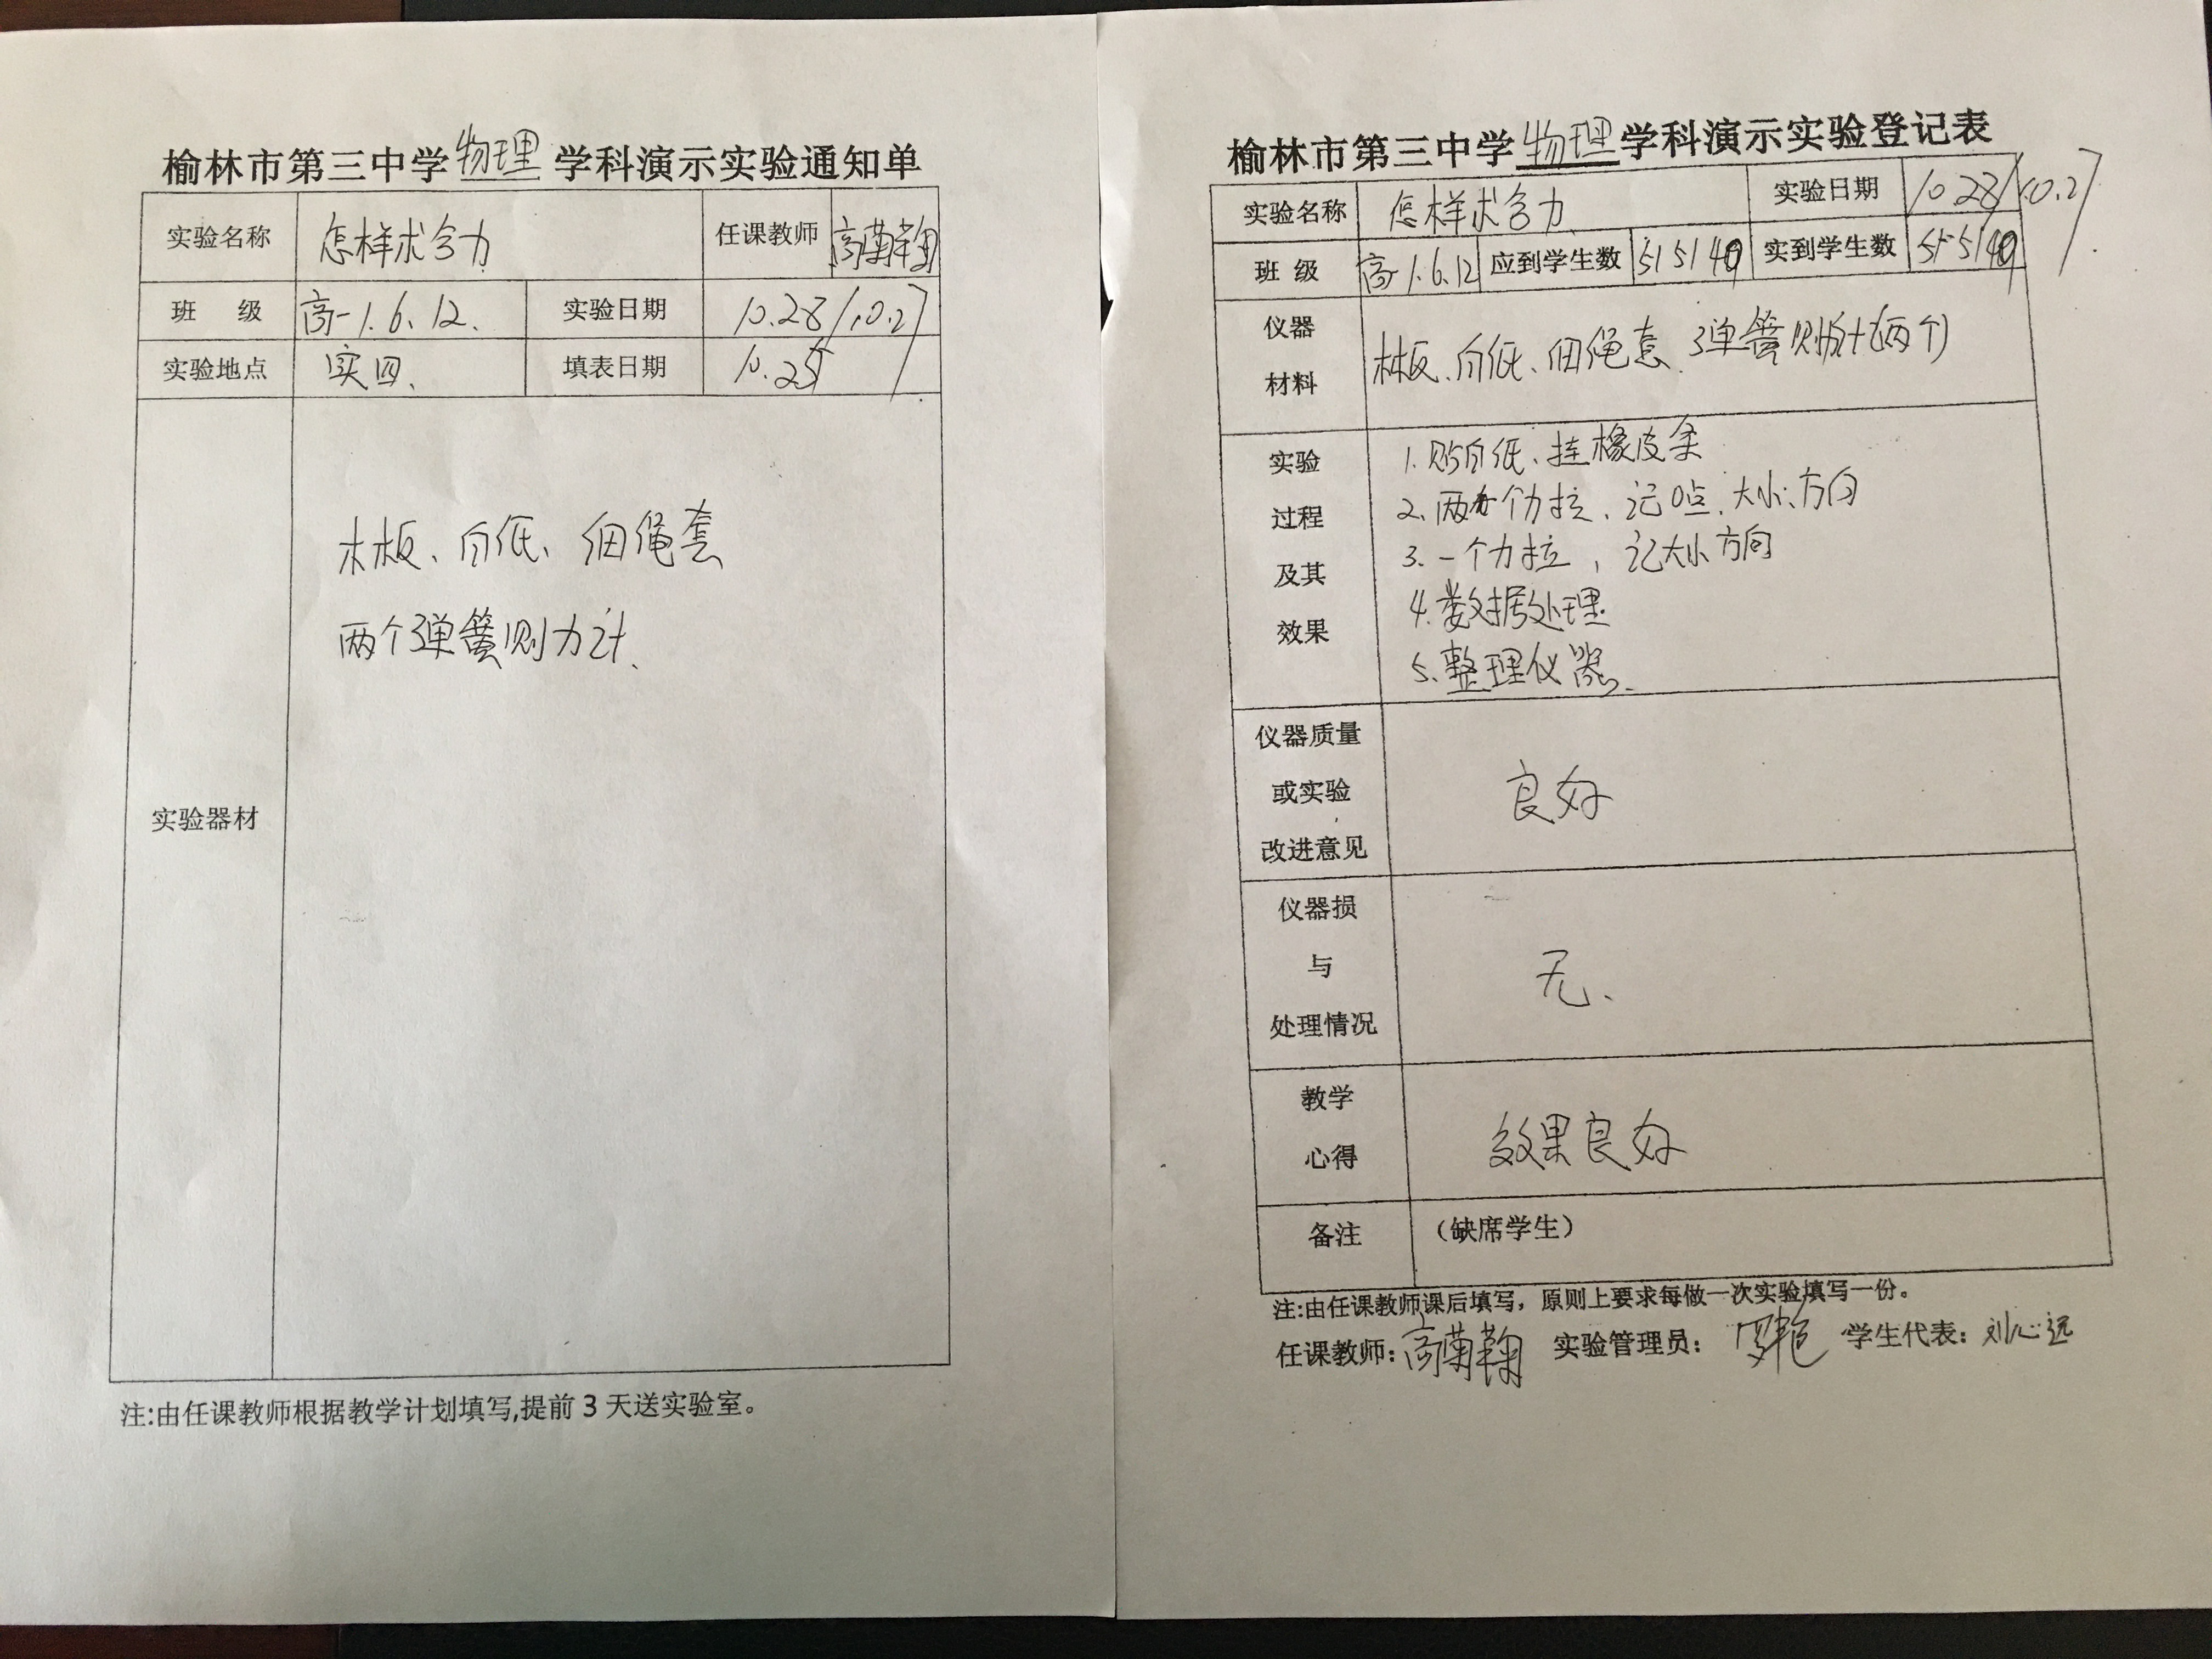 榆林市第三中学物理学科演示实验通知单
实验名称 怎样求合力 任课教师 高菊梅
班 级 高一1.6.12. 实验日期 10.28/10.27
实验地点 实四、 填表日期 10.25
实验器材
木板、白纸、细绳套
两个弹簧测力计、
注:由任课教师根据教学计划填写,提前3天送实验室。
榆林市第三中学物理学科演示实验登记表
实验名称 怎样求合力 实验日期 10.28/10.27
班 级 高一1.6.12 应到学生数 51 51 49 实到学生数 51 51 49
仪器
材料
木板、白纸、细绳套、弹簧测力计(两个)
实验
过程
及其
效果
1.贴白纸、挂橡皮条
2.两个力拉、记O点、大小、方向
3.一个力拉,记大小方向
4.数据处理
5.整理仪器、
仪器质量
或实验
改进意见
良好
仪器损
与
处理情况
无、
教学
心得
效果良好
备注 (缺席学生)
注:由任课教师课后填写,原则上要求每做一次实验填写一份。
任课教师: 实验管理员:罗艳 学生代表:刘心远